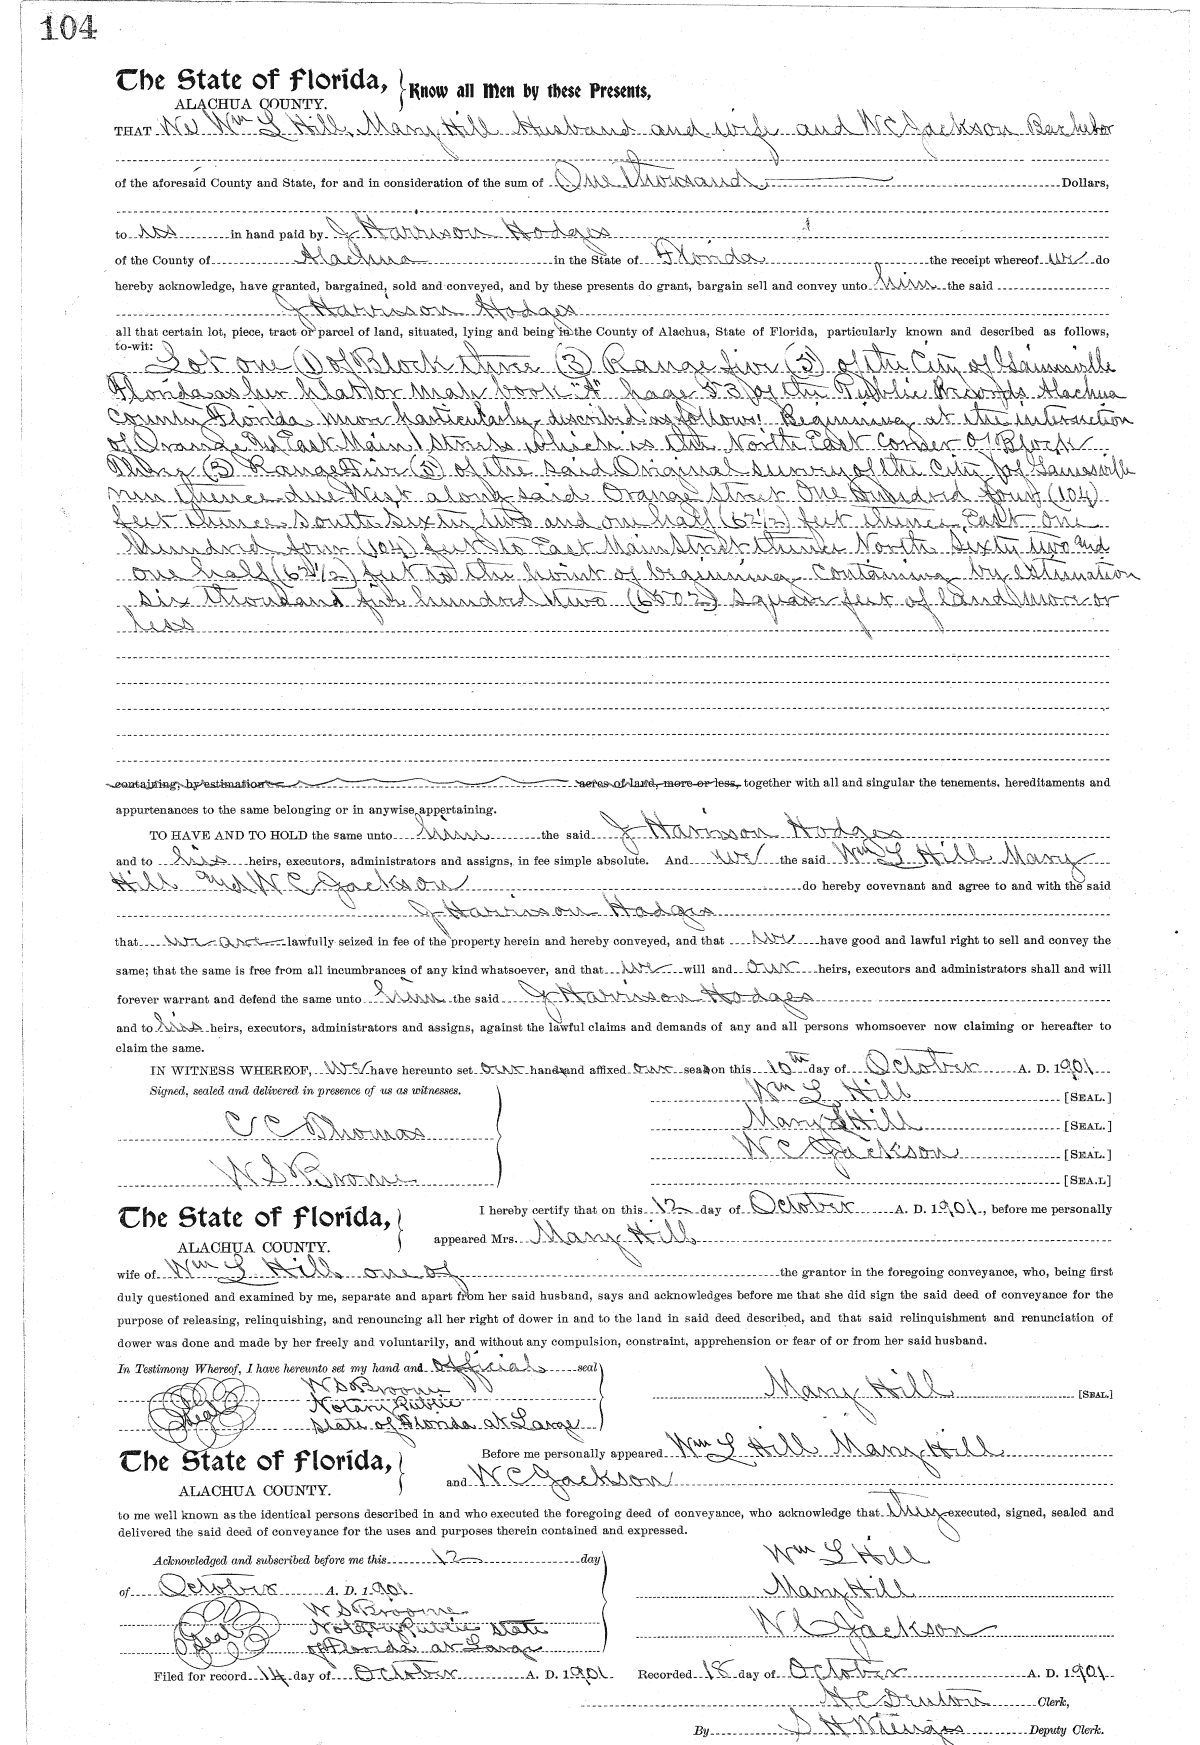 104
The State of Florida, } Know all Men by these Presents,
ALACHUA COUNTY.
THAT We Wm L Hill, Mary Hill Husband and wife and W C Jackson Bachelor
of the aforesaid County and State, for and in consideration of the sum of One thousand Dollars,
to us in hand paid by J Harrison Hodges
of the County of Alachua in the State of Florida the receipt whereof we do
hereby acknowledge, have granted, bargained, sold and conveyed, and by these presents do grant, bargain sell and convey unto him the said
J Harrison Hodges
all that certain lot, piece, tract or parcel of land, situated, lying and being in the County of Alachua, State of Florida, particularly known and described as follows,
to-wit: Lot one (1) of Block three (3) Range five (5) of the City of Gainesville
Florida as per plat or map book "A" page 53 of the Public Records Alachua
County Florida more particularly described as follows: Beginning at the intersection
of Orange and East Main Streets which is the North East Corner of Block
Three (3) Range Five (5) of the said Original survey of the City of Gainesville
run thence due West along said Orange Street One Hundred four (104)
feet thence South Sixty two and one half (62 1/2) feet thence East one
Hundred four (104) feet to East Main Street thence North Sixty two and
one half (62 1/2) feet to the point of beginning Containing by estimation
six thousand five hundred two (6502) square feet of land more or
less
containing, by estimation acres of land, more or less, together with all and singular the tenements, hereditaments and
appurtenances to the same belonging or in anywise appertaining.
TO HAVE AND TO HOLD the same unto him the said J Harrison Hodges
and to his heirs, executors, administrators and assigns, in fee simple absolute. And we the said Wm L Hill Mary
Hill and W C Jackson do hereby covevnant and agree to and with the said
J Harrison Hodges
that we are lawfully seized in fee of the property herein and hereby conveyed, and that we have good and lawful right to sell and convey the
same; that the same is free from all incumbrances of any kind whatsoever, and that we will and our heirs, executors and administrators shall and will
forever warrant and defend the same unto him the said J Harrison Hodges
and to his heirs, executors, administrators and assigns, against the lawful claims and demands of any and all persons whomsoever now claiming or hereafter to
claim the same.
IN WITNESS WHEREOF, We have hereunto set our hand and affixed our seals on this 10th day of October A. D. 1901
Signed, sealed and delivered in presence of us as witnesses.
Wm L Hill [SEAL.]
C C Thomas
Mary L Hill [SEAL.]
W C Jackson [SEAL.]
W S Broome
[SEA.L]
The State of Florida, } I hereby certify that on this 12 day of October A. D. 1901, before me personally
ALACHUA COUNTY. appeared Mrs. Mary Hill
wife of Wm L Hill one of the grantor in the foregoing conveyance, who, being first
duly questioned and examined by me, separate and apart from her said husband, says and acknowledges before me that she did sign the said deed of conveyance for the
purpose of releasing, relinquishing, and renouncing all her right of dower in and to the land in said deed described, and that said relinquishment and renunciation of
dower was done and made by her freely and voluntarily, and without any compulsion, constraint, apprehension or fear of or from her said husband.
In Testimony Whereof, I have hereunto set my hand and official seal
W S Broome
Mary Hill [SEAL.]
Seal Notary Public
State of Florida at Large
The State of Florida, } Before me personally appeared Wm L Hill Mary Hill
ALACHUA COUNTY. and W C Jackson
to me well known as the identical persons described in and who executed the foregoing deed of conveyance, who acknowledge that they executed, signed, sealed and
delivered the said deed of conveyance for the uses and purposes therein contained and expressed.
Acknowledged and subscribed before me this 12 day
Wm L Hill
of October A. D. 1901
Mary Hill
W S Broome
Seal Notary Public State
W C Jackson
of Florida at Large
Filed for record 14 day of October A. D. 1901 Recorded 18 day of October A. D. 1901
H C Denton Clerk,
By S H Wienges Deputy Clerk.